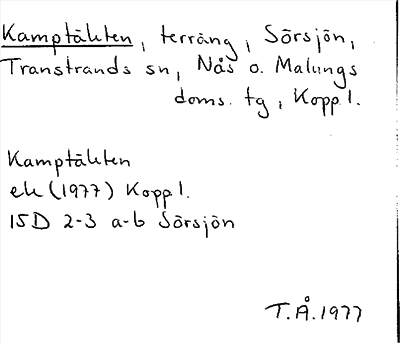 Kamptäkten, terräng, Sörsjön,
Transtrands sn, Nås o. Malungs
doms. tg, Kopp l.
Kamptäkten
ek (1977) Kopp l.
15D 2-3 a-b Sörsjön
T.Å.1977